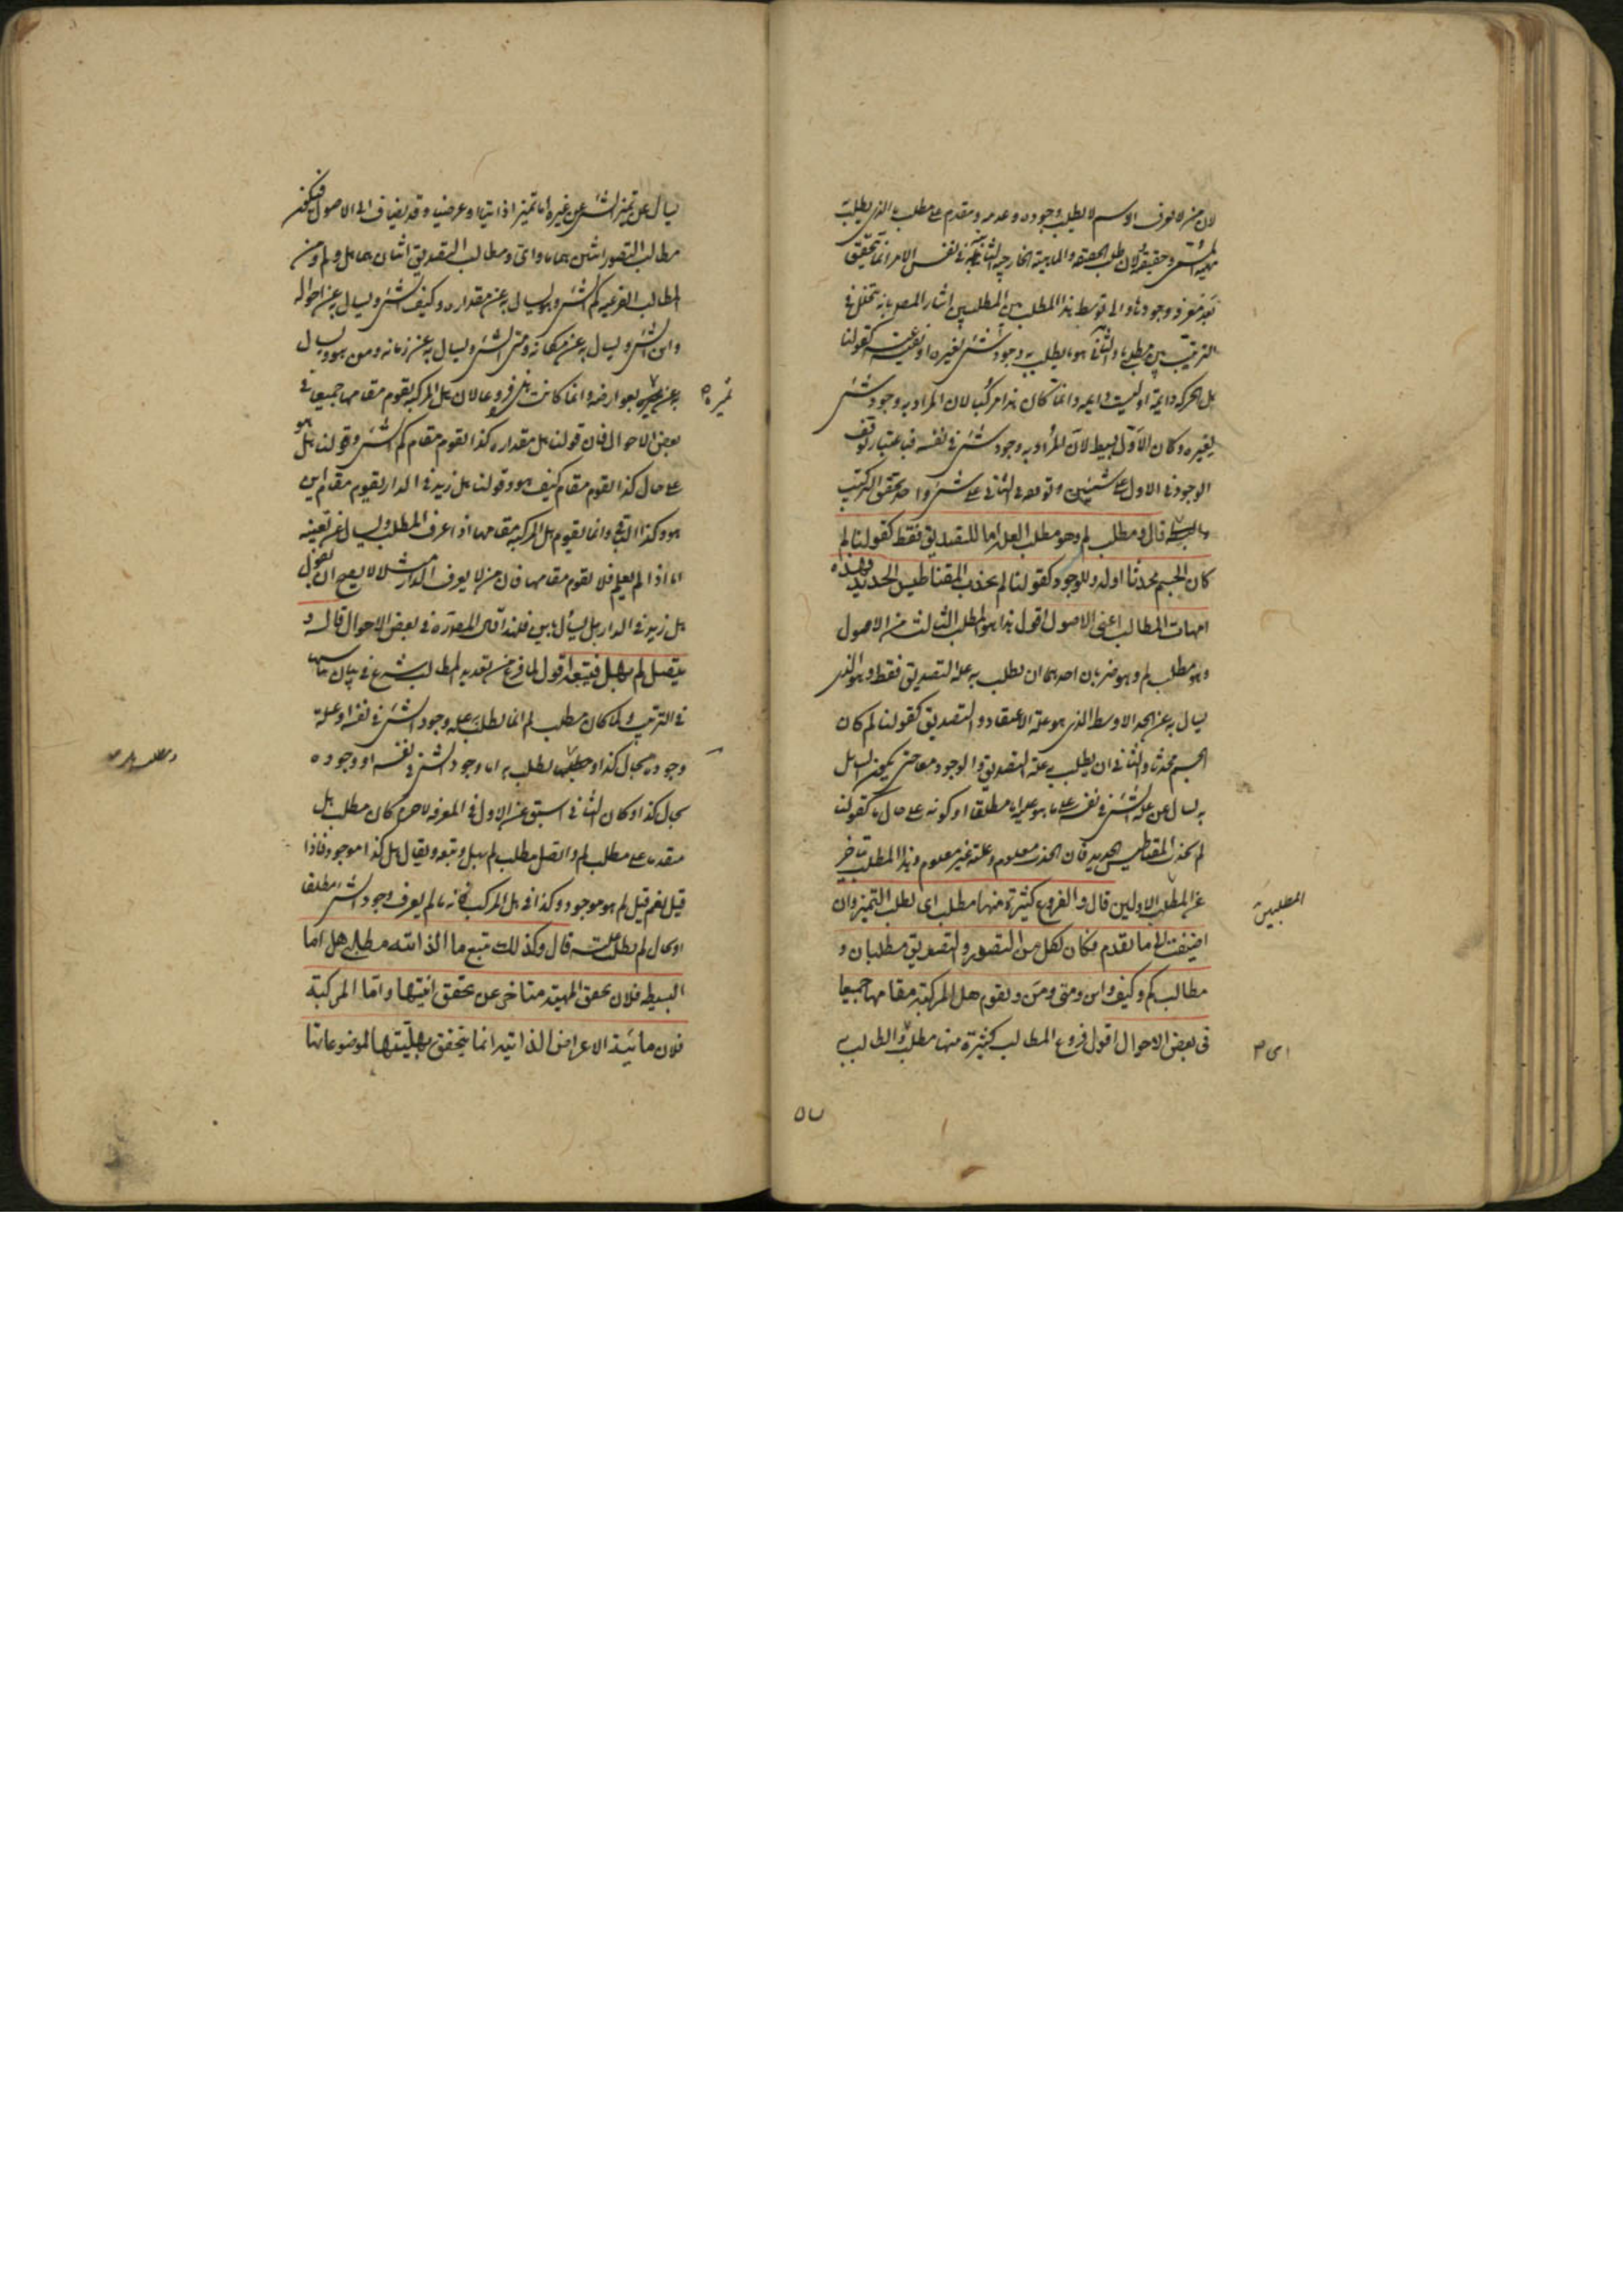 لان من لا يعرف او سم لا يطلب وجوده وعدمه ومقدم على مطلب ما الذى يطلب به
مهية الشئ وحقيقته لان طلب الحقيقة والماهية الخارجية الثابتة فى نفس الامر انما يتحقق
بعد معرفة وجودها والى توسط هذا المطلب بين المطلبين اشار المص بانه يتخلل فى
الترتيب بين مطلبى ما والثانى هو ما يطلب به وجود شئ لغيره او نفيه عنه كقولنا
هل الحركة دائمة او ليست دائمة وانما كان هذا مركب لان المراد به وجود شئ
لغيره وكان الاول بسيط لان المراد به وجود شئ فى نفسه فباعتبار توقف
الوجود فى الاول على شيئين وتوقفه فى الثانى على شئ واحد تحقق التركيب
والبساطة قال ومطلب لم وهو مطلب العلة اما للتصديق فقط كقولنا لم
كان الجسم محدثا او له وللوجود كقولنا لم يجذب المقناطيس الحديد وهذه
امهات المطالب اعنى الاصول اقول هذا هو المطلب الثالث من الاصول
وهو مطلب لم وهو ضربان احدهما ان يطلب به علة التصديق فقط وهو الذى
يسال به عن الحد الاوسط الذى هو علة الاعتقاد والتصديق كقولنا لم كان
الجسم محدثا والثانى ان يطلب به علة التصديق والوجود معا حتى يكون السائل
به يسال عن علة الشئ فى نفسه على ما هو عليه اما مطلقا او كونه على حال ما كقولنا
لم يجذب المقناطيس الحديد فان الجذب معلوم وعلته غير معلوم وهذا المطلب متاخر
عن المطلب الاولين قال والفروع كثيرة منها مطلب اى لطلب التميز وان
المطلبين
اضيفت الى ما تقدم فكان لكل من التصور والتصديق مطلبان و
مطالب كم وكيف واين ومتى ومن ويقوم هل المركبة مقامها جميعا
فى بعض الاحوال اقول فروع المطالب كثيرة منها مطلب والطالب به
اى م
٥٧
يسال عن تميز الشئ عن غيره اما تميزا ذاتيا او عرضيا وقد يضاف الى الاصول فيكون
مطالب التصور اثنين هما ما واى ومطالب التصديق اثنان هما هل ولم ومن
المطالب الفرعية كم الشئ وهو يسال به عن مقداره وكيف الشئ ويسال به عن احواله
واين الشئ ويسال به عن مكانه ومتى الشئ ويسال به عن زمانه ومن هو ويسال
به عن بعوارضه وانما كانت هذه فروعا لان هل المركبة يقوم مقامها جميعا فى
تميزه
بعض الاحوال فان قولنا هل مقداره كذا يقوم مقام كم الشئ وقولنا هل هو
على حال كذا يقوم مقام كيف هو وقولنا هل زيد فى الدار يقوم مقام اين
هو وكذا الباقى وانما يقوم هل المركبة مقامها اذا عرف المطلب ويسال عن تعينه
اما اذا لم يعلم فلا يقوم مقامها فان من لا يعرف الدار مثلا لا يصح ان يقول
هل زيد فى الدار بل يسأل باين فلهذا قال المص فى بعض الاحوال قال و
يتصل لم بهل فيتبعه اقول لما فرغ من تعديد المطالب شرع فى بيان مناسبتها
فى الترتيب ولما كان مطلب لم انما يطلب به علة وجود الشئ فى نفسه او علة
وجوده بحال كذا ومطلب يطلب به اما وجود الشئ فى نفسه او وجوده
ومطلب هل
بحال كذا وكان الثانى اسبق عن الاول فى المعرفة لاجرم كان مطلب هل
متقدما على مطلب لم واتصل مطلب لم بهل وتبعه ويقال هل كذا موجود فاذا
قيل نعم قيل لم هو موجود وكذا فى هل المركب فانه ما لم يعرف وجود الشئ مطلقا
او بحال لم يطلب علته قال وكذلك يتبع ما الذاتية مطلب هل اما
البسيطة فلان تحقق المهية متاخر عن تحقق انيتها واما المركبة
فلان مائية الاعراض الذاتية انما يتحقق بهليتها لموضوعاتها